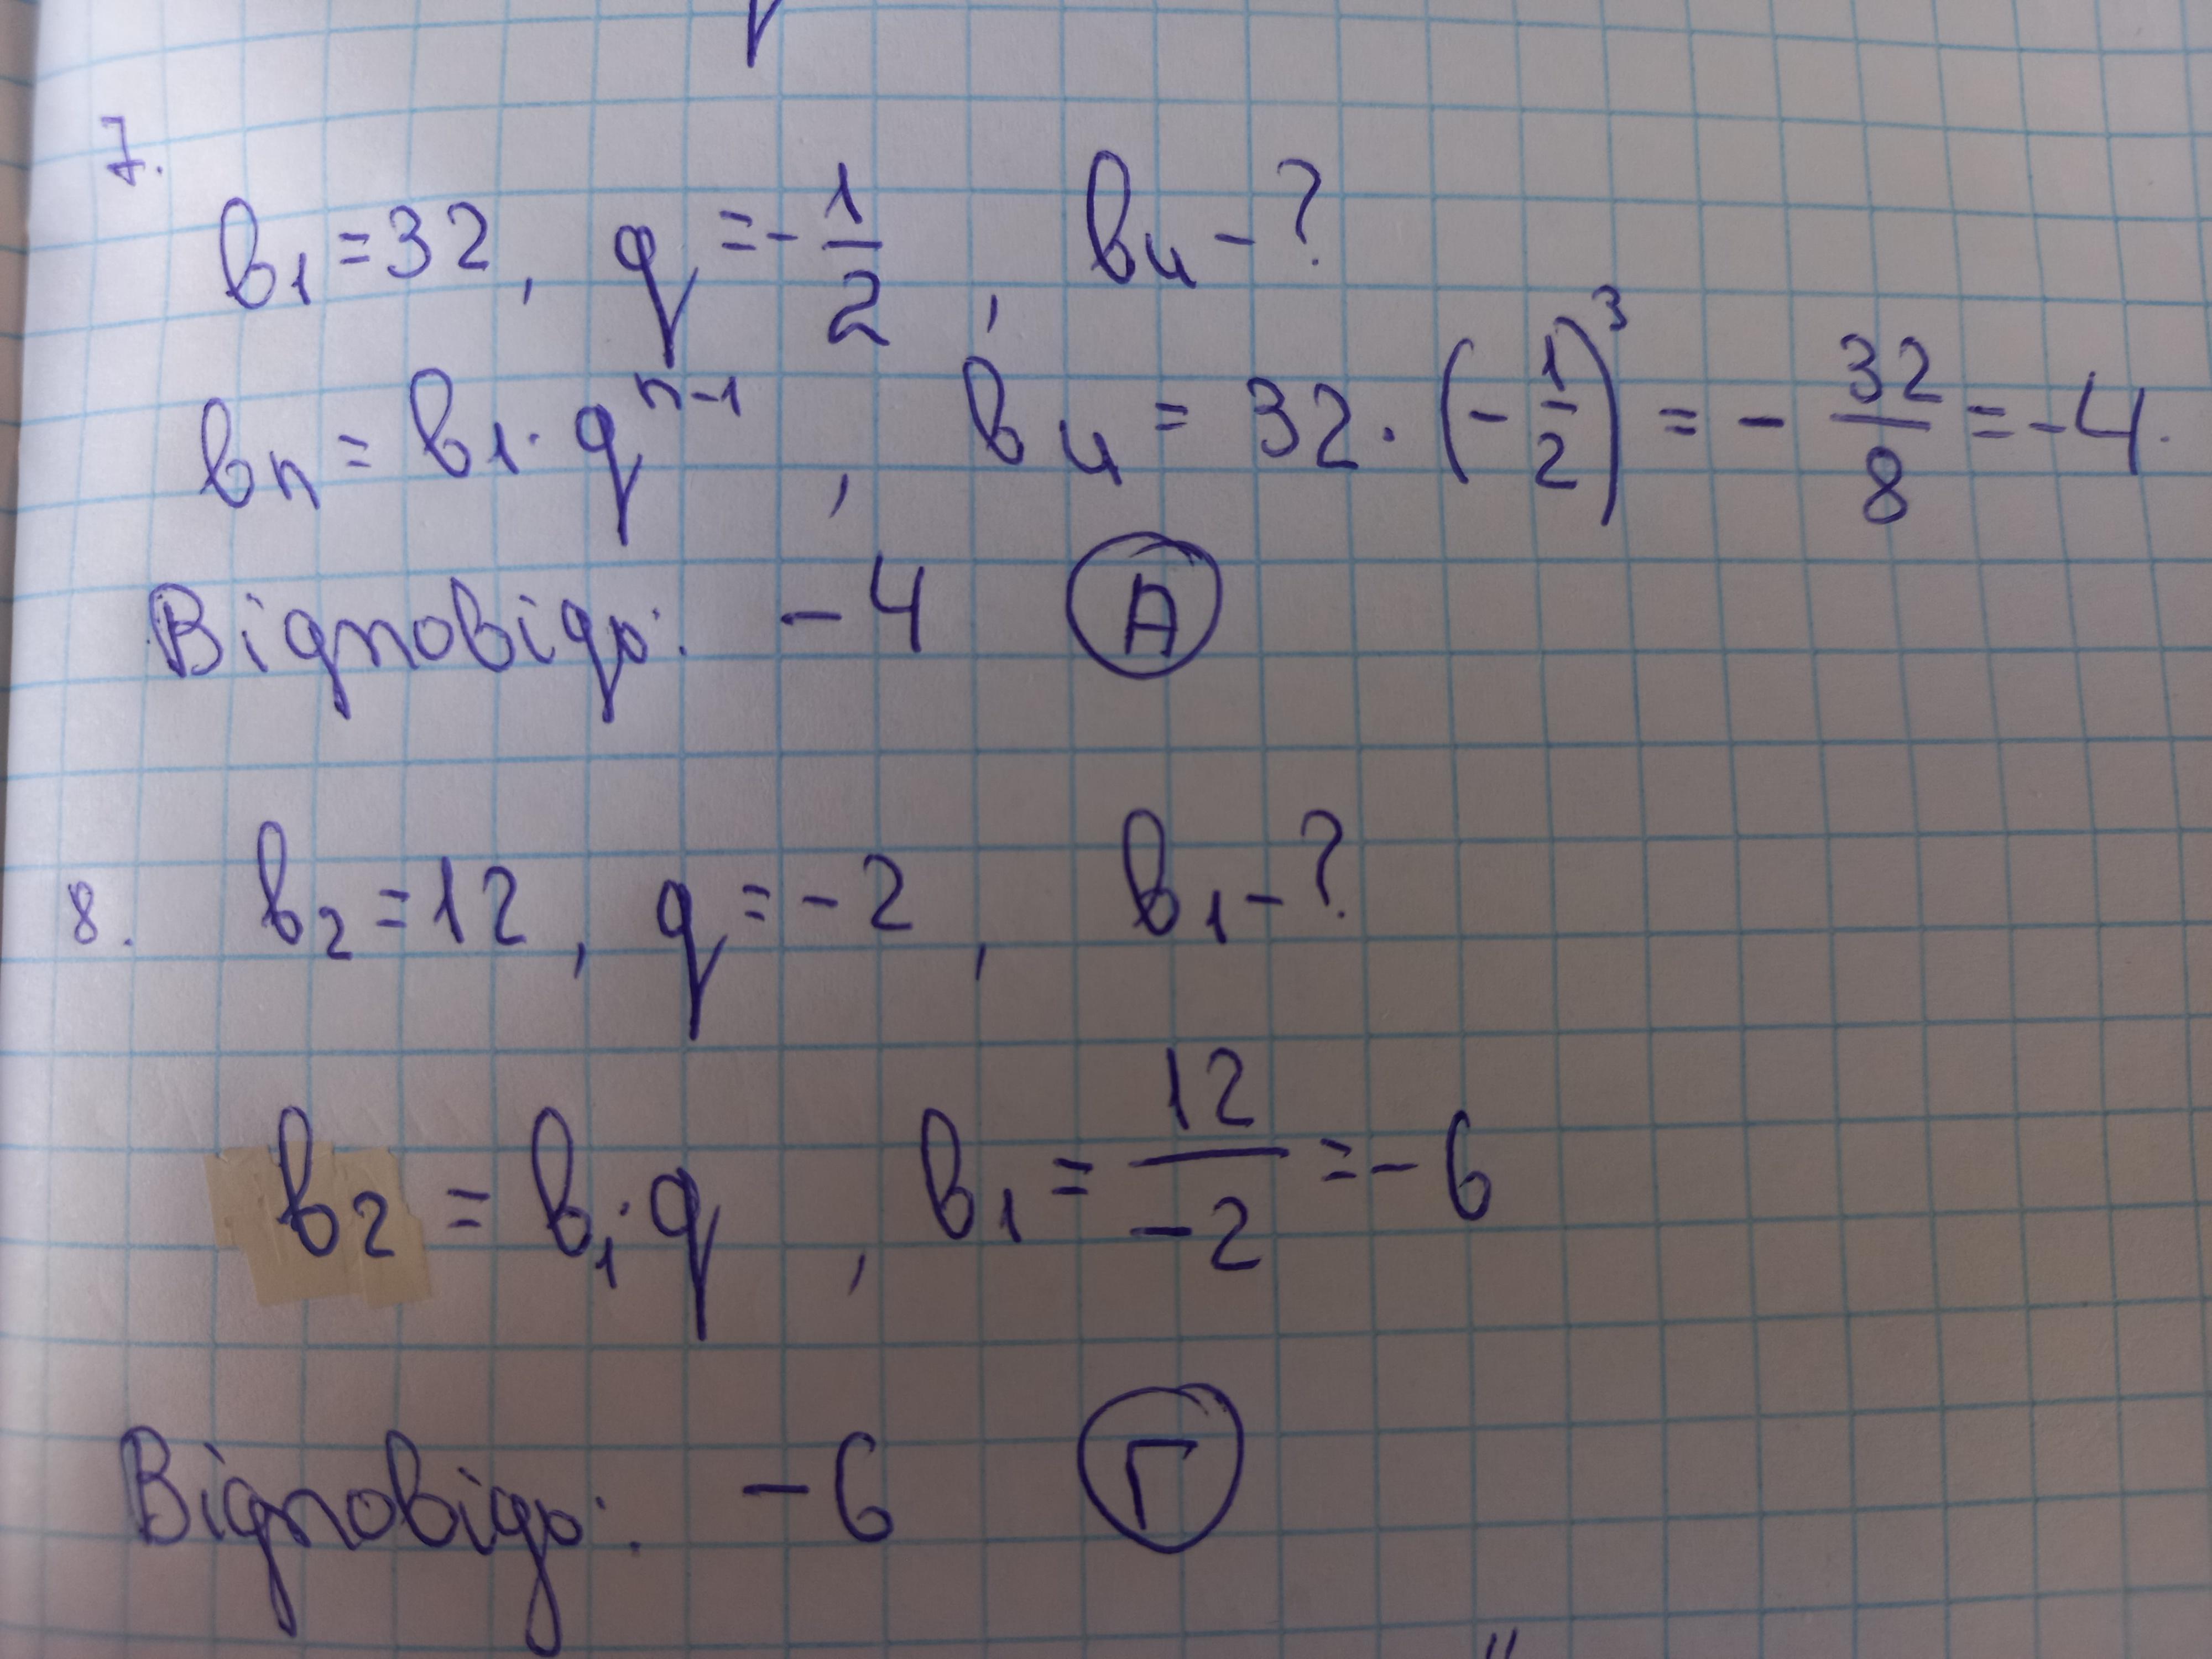 7.
b₁ = 32, q = -1/2, b₄ - ?
bₙ = b₁ · qⁿ⁻¹, b₄ = 32 · (-1/2)³ = -32/8 = -4.
Відповідь: -4 А
8. b₂ = 12, q = -2, b₁ - ?
b₂ = b₁ · q, b₁ = 12/-2 = -6
Відповідь: -6 Г